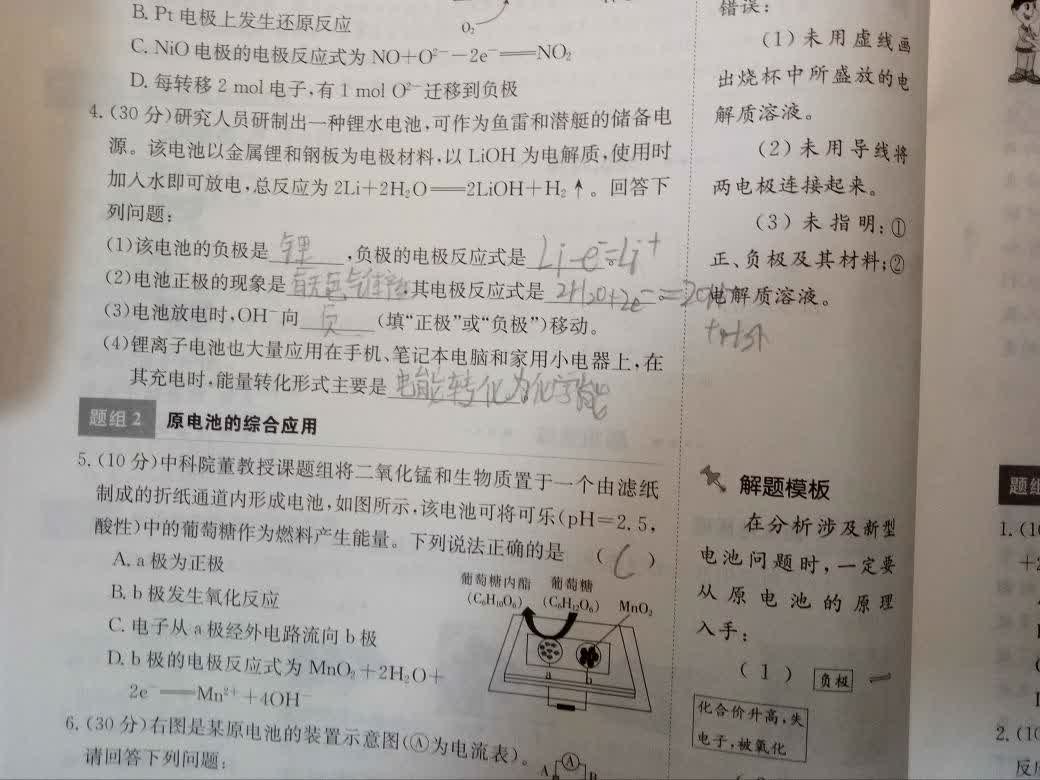 B. Pt 电极上发生还原反应
O₂
C. NiO 电极的电极反应式为 NO+O²⁻−2e⁻══NO₂
D. 每转移 2 mol 电子,有 1 mol O²⁻ 迁移到负极
4. (30 分)研究人员研制出一种锂水电池,可作为鱼雷和潜艇的储备电
源。该电池以金属锂和钢板为电极材料,以 LiOH 为电解质,使用时
加入水即可放电,总反应为 2Li+2H₂O══2LiOH+H₂↑。回答下
列问题:
(1)该电池的负极是 锂 ,负极的电极反应式是 Li-e⁻=Li⁺
(2)电池正极的现象是 有无色气体产生 其电极反应式是 2H₂O+2e⁻==2OH⁻
+H₂↑
(3)电池放电时,OH⁻ 向 负 (填“正极”或“负极”)移动。
(4)锂离子电池也大量应用在手机、笔记本电脑和家用小电器上,在
其充电时,能量转化形式主要是 电能转化为化学能
题组 2 原电池的综合应用
5. (10 分)中科院董教授课题组将二氧化锰和生物质置于一个由滤纸
制成的折纸通道内形成电池,如图所示,该电池可将可乐(pH=2.5,
酸性)中的葡萄糖作为燃料产生能量。下列说法正确的是 ( C )
A. a 极为正极
B. b 极发生氧化反应
C. 电子从 a 极经外电路流向 b 极
D. b 极的电极反应式为 MnO₂+2H₂O+
2e⁻══Mn²⁺+4OH⁻
葡萄糖内酯 葡萄糖
(C₆H₁₀O₆) (C₆H₁₂O₆) MnO₂
a b
6. (30 分)右图是某原电池的装置示意图(Ⓐ为电流表)。
请回答下列问题:
A Ⓐ B
错误:
(1) 未用虚线画
出烧杯中所盛放的电
解质溶液。
(2) 未用导线将
两电极连接起来。
(3) 未指明:①
正、负极及其材料;②
电解质溶液。
解题模板
在分析涉及新型
电池问题时,一定要
从原电池的原理
入手:
(1) 负极
化合价升高,失
电子,被氧化
题组
1. (10
2. (10
反应